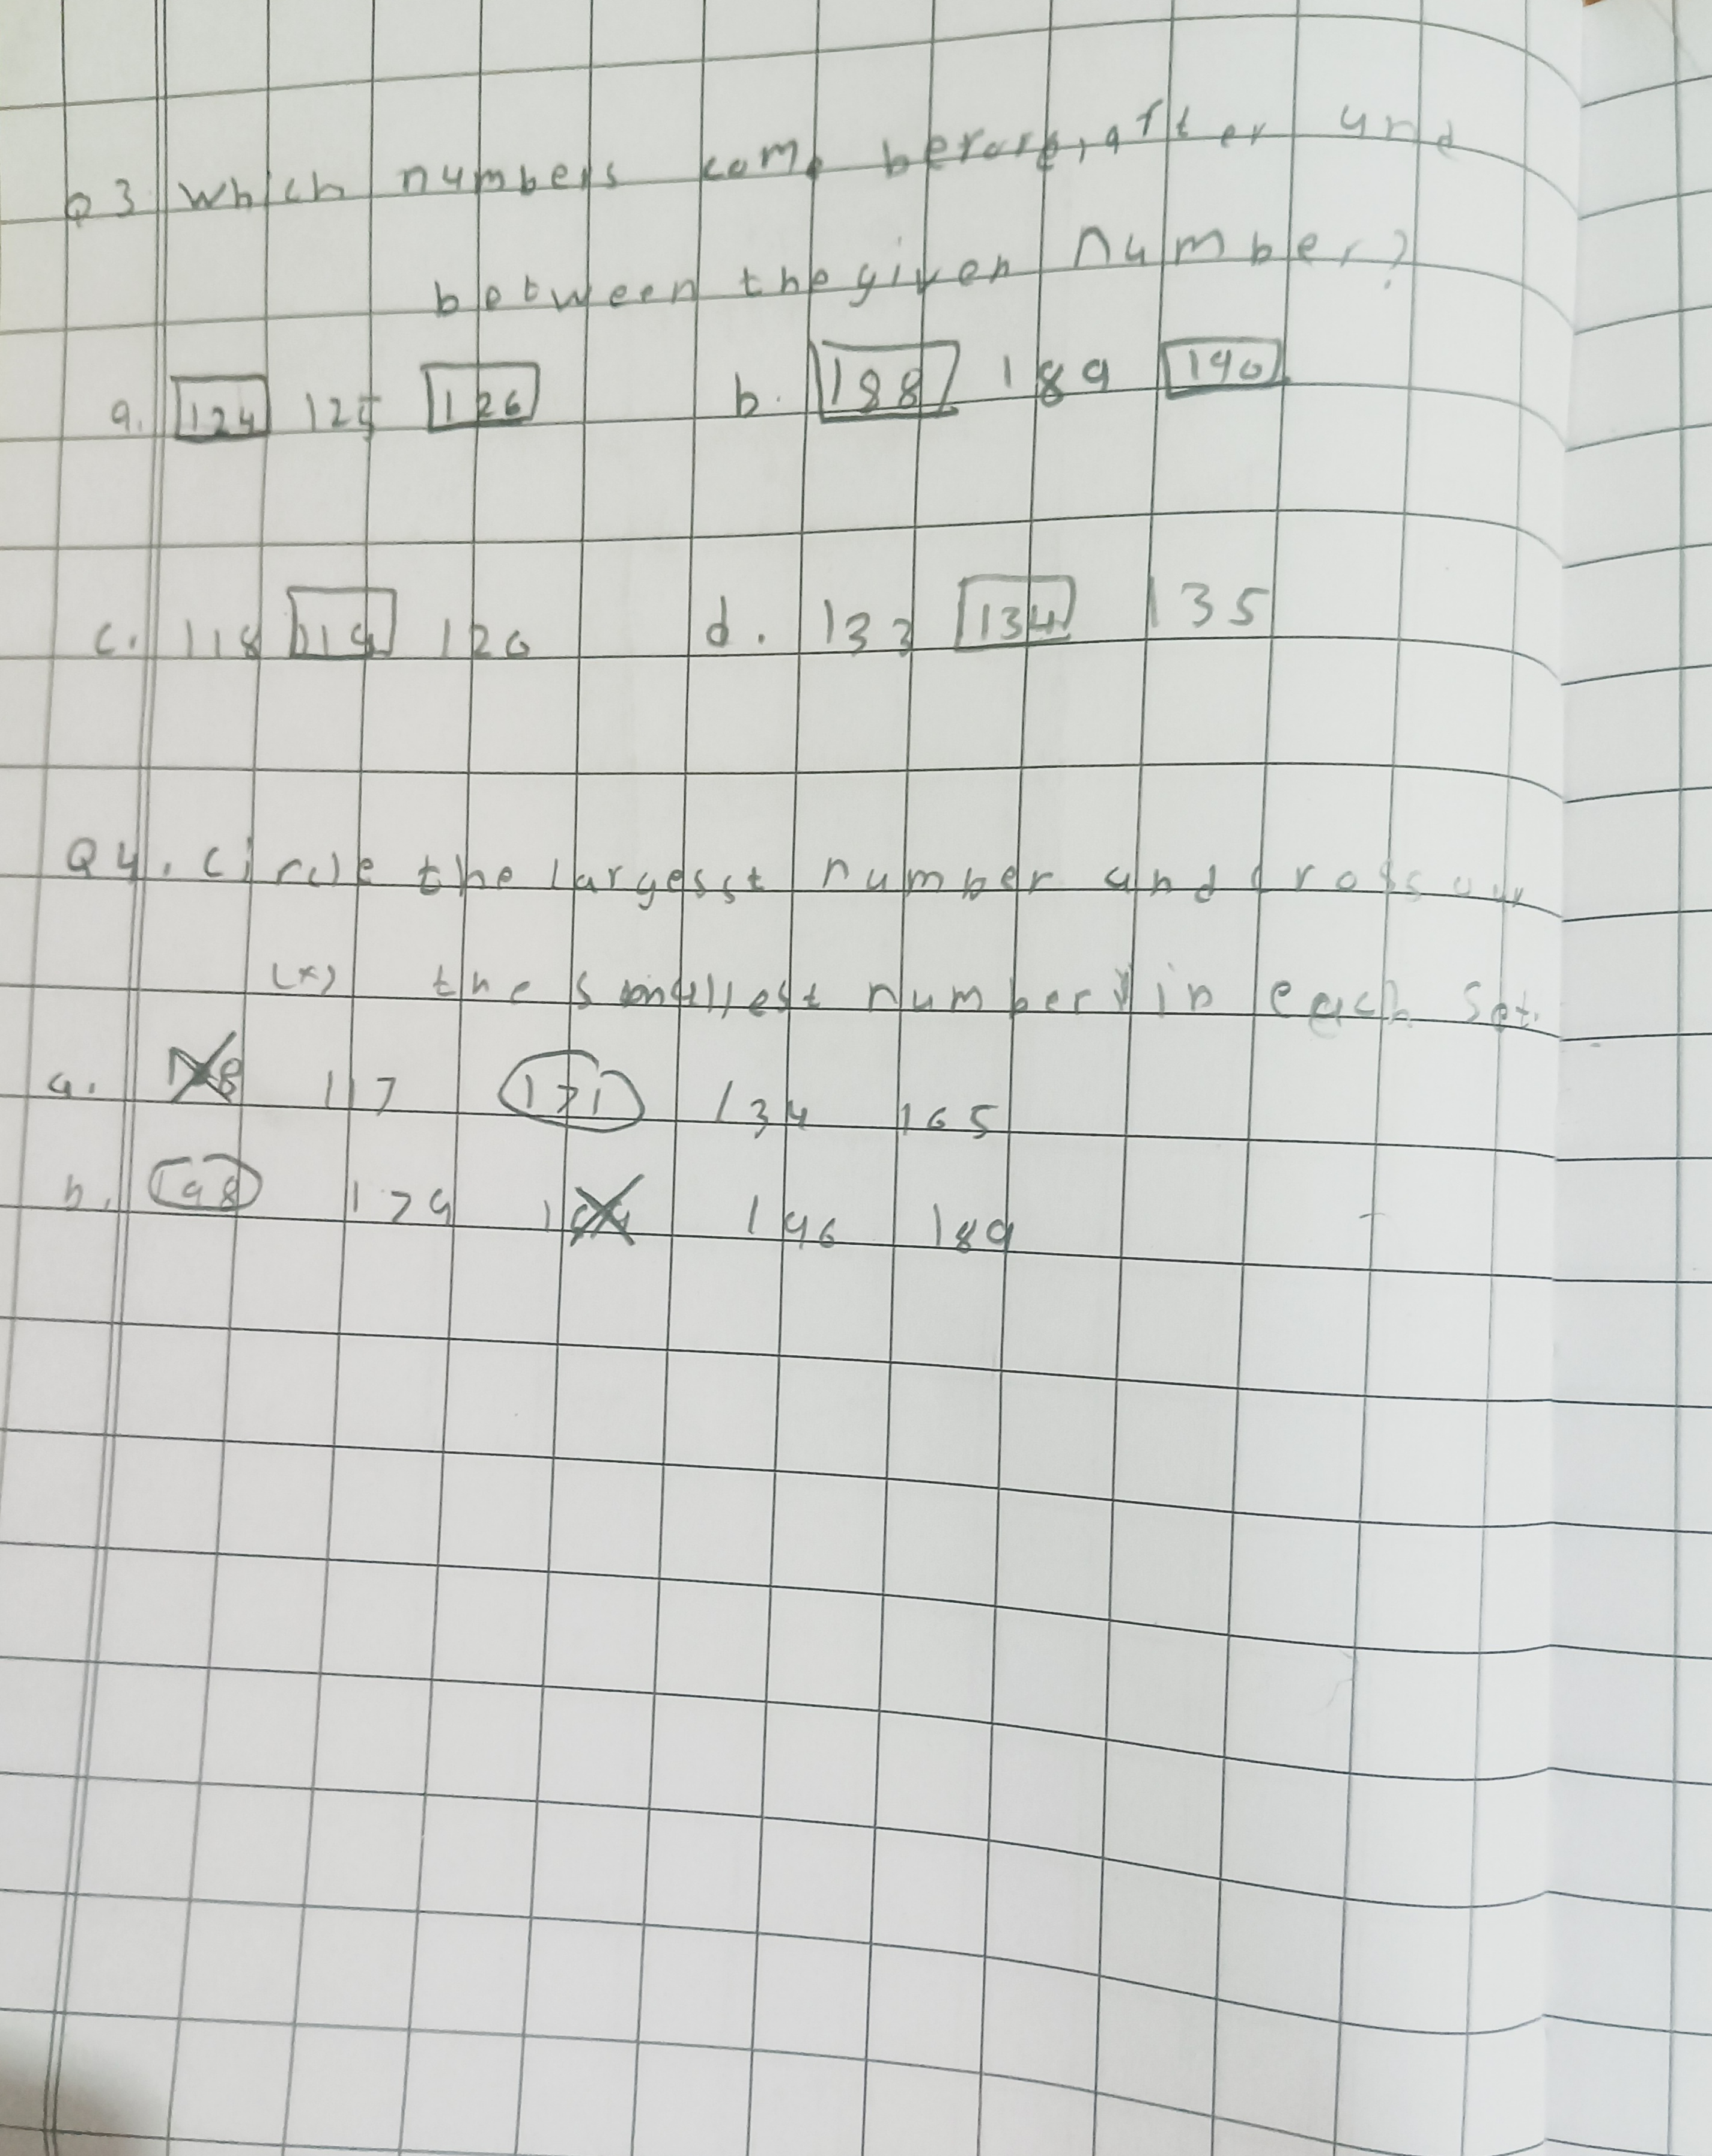 Q3 Which numbers come berore, after and
between the given number?
a. 124 125 126 b. 188 189 190
c. 118 119 120 d. 133 134 135
Q4. Circle the largesst number and cross
(x) the smallest number in each set.
a. 117 171 134 165
b. 98 179 196 189